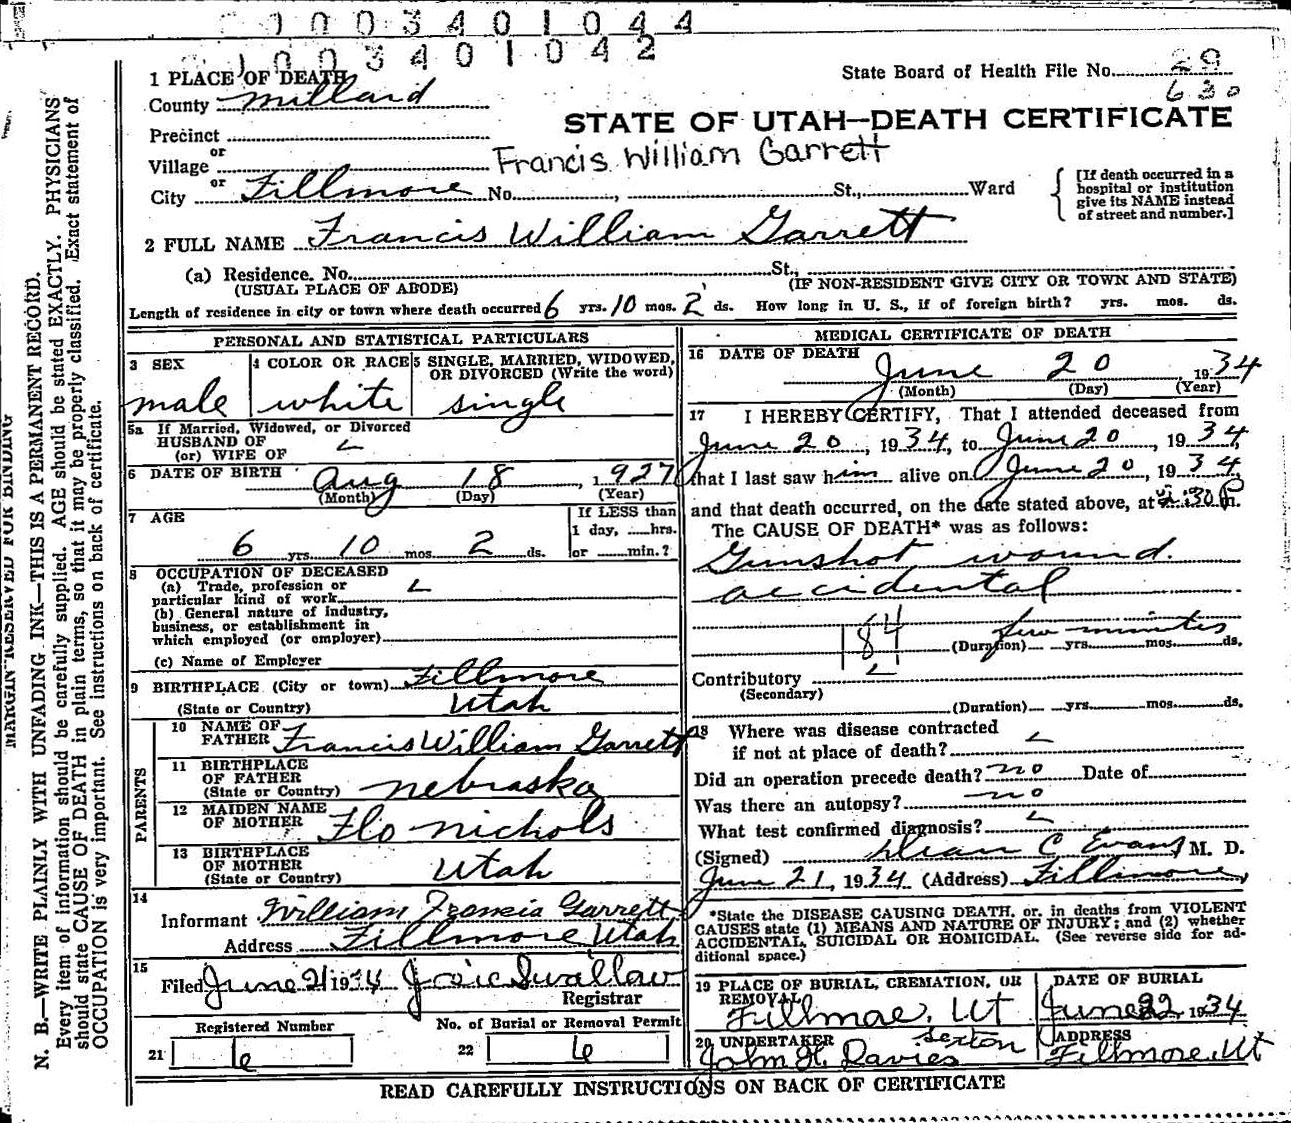 0003401044
1003401042
1 PLACE OF DEATH
County Millard
State Board of Health File No. 29
630
STATE OF UTAH—DEATH CERTIFICATE
Precinct
or
Village
Francis William Garrett
or
City Fillmore No. , St., Ward
[If death occurred in a hospital or institution give its NAME instead of street and number.]
2 FULL NAME Francis William Garrett
(a) Residence. No. St.,
(USUAL PLACE OF ABODE) (IF NON-RESIDENT GIVE CITY OR TOWN AND STATE)
Length of residence in city or town where death occurred 6 yrs. 10 mos. 2 ds. How long in U. S., if of foreign birth? yrs. mos. ds.
PERSONAL AND STATISTICAL PARTICULARS
3 SEX
male
4 COLOR OR RACE
white
5 SINGLE, MARRIED, WIDOWED, OR DIVORCED (Write the word)
single
5a If Married, Widowed, or Divorced
HUSBAND OF
(or) WIFE OF
6 DATE OF BIRTH Aug 18, 1927
(Month) (Day) (Year)
7 AGE
6 yrs. 10 mos. 2 ds.
If LESS than
1 day, hrs.
or min.?
8 OCCUPATION OF DECEASED
(a) Trade, profession or
particular kind of work
(b) General nature of industry,
business, or establishment in
which employed (or employer)
(c) Name of Employer
9 BIRTHPLACE (City or town) Fillmore
(State or Country) Utah
PARENTS
10 NAME OF FATHER Francis William Garrett
11 BIRTHPLACE OF FATHER
(State or Country) Nebraska
12 MAIDEN NAME OF MOTHER Flo Nichols
13 BIRTHPLACE OF MOTHER
(State or Country) Utah
14
Informant William Francis Garrett
Address Fillmore Utah
15
Filed June 21 1934 Swallow
Registrar
Registered Number
21 6
No. of Burial or Removal Permit
22 6
MEDICAL CERTIFICATE OF DEATH
16 DATE OF DEATH
June 20 1934
(Month) (Day) (Year)
17 I HEREBY CERTIFY, That I attended deceased from
June 20, 1934, to June 20, 1934,
that I last saw him alive on June 20, 1934,
and that death occurred, on the date stated above, at :30 P m.
The CAUSE OF DEATH* was as follows:
Gunshot wound.
accidental
184
few minutes
(Duration) yrs. mos. ds.
Contributory
(Secondary)
(Duration) yrs. mos. ds.
18 Where was disease contracted
if not at place of death?
Did an operation precede death? no Date of
Was there an autopsy? no
What test confirmed diagnosis?
(Signed) C Evans M. D.
June 21, 1934 (Address) Fillmore,
*State the DISEASE CAUSING DEATH, or, in deaths from VIOLENT
CAUSES state (1) MEANS AND NATURE OF INJURY; and (2) whether
ACCIDENTAL, SUICIDAL OR HOMICIDAL. (See reverse side for ad-
ditional space.)
19 PLACE OF BURIAL, CREMATION, OR REMOVAL
Fillmore, Ut
DATE OF BURIAL
June 22, 1934
20 UNDERTAKER sexton
John H. Davies
ADDRESS
Fillmore, Ut
READ CAREFULLY INSTRUCTIONS ON BACK OF CERTIFICATE
MARGIN RESERVED FOR BINDING
N. B.—WRITE PLAINLY WITH UNFADING INK—THIS IS A PERMANENT RECORD.
Every item of information should be carefully supplied. AGE should be stated EXACTLY. PHYSICIANS
should state CAUSE OF DEATH in plain terms, so that it may be properly classified. Exact statement of
OCCUPATION is very important. See instructions on back of certificate.